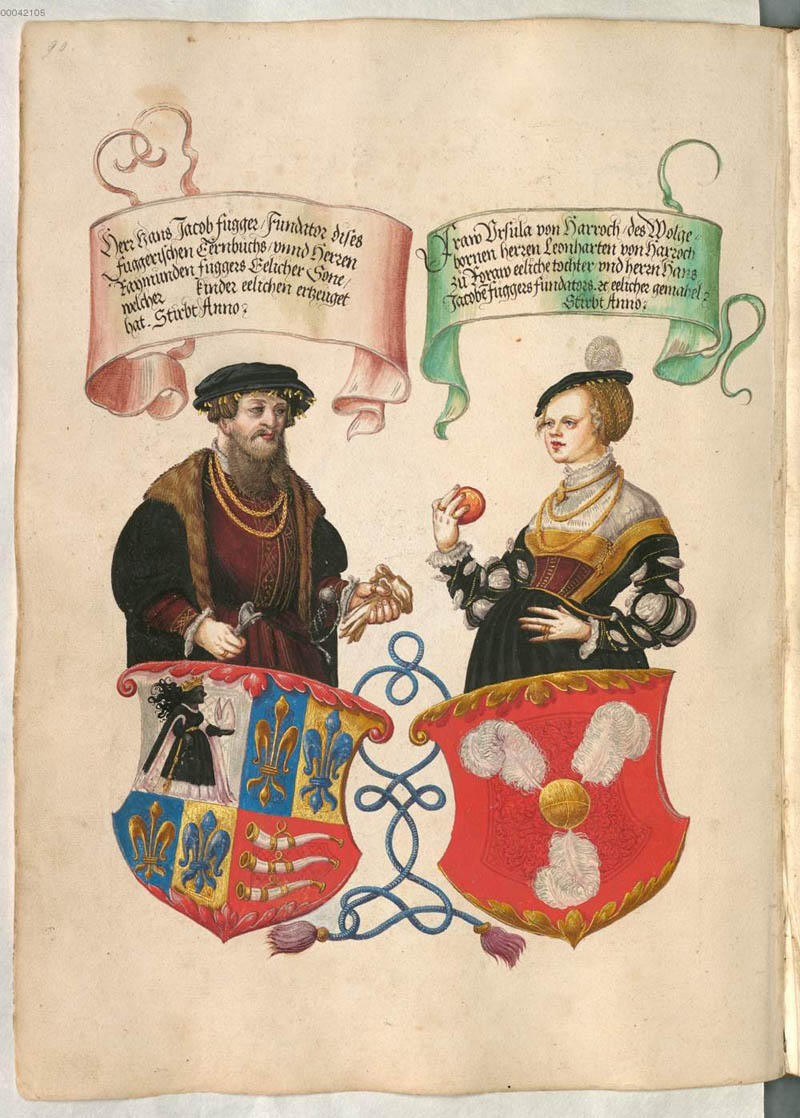 00042105
90.
Herr Hans Jacob Fugger / Fundator dises
Fuggerischen Eernbuchs / vnnd Herren
Raymunden Fuggers Eelicher Sone /
welcher kinder eelichen ertzeuget
hat. Stirbt Anno:
Fraw Vrsula von Harroch / des Wolge /
bornen herren Leonharten von Harroch
zu Roraw eeliche tochter vnd herrn Hans
Jacobē Fuggers fundators. ꝛc eelicher gemahel:
Stirbt Anno: